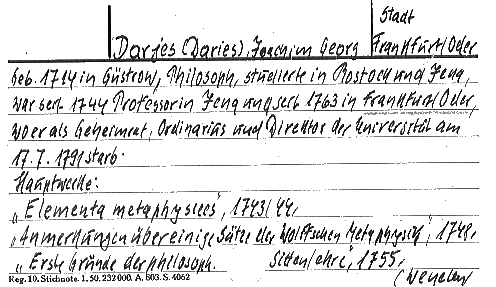 Stadt
Darjes (Daries), Joachim Georg Frankfurt/Oder
geb. 1714 in Güstrow, Philosoph, studierte in Rostock und Jena,
war seit 1744 Professor in Jena und seit 1763 in Frankfurt/Oder,
wo er als Geheimrat, Ordinarius und Direktor der Universität am
17.7.1791 starb.
Hauptwerke:
„Elementa metaphysices", 1743/44,
„Anmerkungen über einige Sätze der Wolffschen Metaphysik", 1748,
„Erste Gründe der philosoph. Sittenlehre", 1755,
Reg. 10. Stichnote. 1. 50. 232000. A. 803. S. 4062